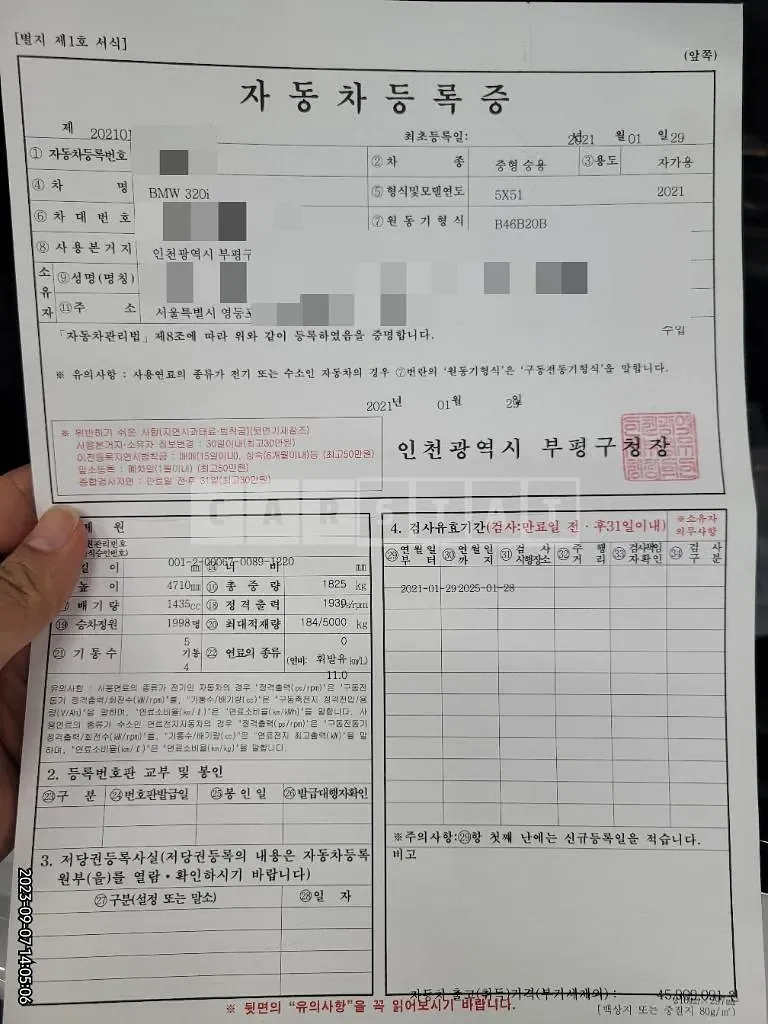 [별지 제1호 서식]
(앞쪽)
자동차등록증
제 202101
최초등록일: 2021 년 01 월 29 일
① 자동차등록번호
②차 종 중형 승용 ③용도 자가용
④ 차 명 BMW 320i ⑤ 형식및모델연도 5X51 2021
⑥ 차 대 번 호 ⑦ 원 동 기 형 식 B46B20B
⑧ 사 용 본 거 지 인천광역시 부평구
소유자 ⑨성명(명칭)
⑪주 소 서울특별시 영등포
「자동차관리법」 제8조에 따라 위와 같이 등록하였음을 증명합니다. 수입
※ 유의사항 : 사용연료의 종류가 전기 또는 수소인 자동차의 경우 ⑦번란의 '원동기형식'은 '구동전동기형식'을 말합니다.
2021년 01월 29일
※ 위반하기 쉬운 사항(지연시과태료·범칙금)(뒷면기재참조)
사용본거지·소유자 정보변경 : 30일이내(최고30만원)
이전등록지연시범칙금 : 매매(15일이내), 상속(6개월이내)등 (최고50만원)
말소등록 : 폐차말(1월이내) (최고50만원)
종합검사지연 : 만료일 전·후 31일(최고30만원)
인천광역시 부평구청장
CARSTAT
제 원
관리번호
001-2-00067-0089-1220
길 이 mm ⑭ 너 비 mm
높 이 4710mm ⑯ 총 중 량 1825 kg
배 기 량 1435cc ⑱ 정 격 출 력 1939 /rpm
⑲ 승차정원 1998명 ⑳ 최대적재량 184/5000 kg
㉑ 기 통 수 5 기통 4 ㉒ 연료의 종류 0 휘발유 (연비: km/L) 11.0
유의사항 : 사용연료의 종류가 전기인 자동차의 경우 "정격출력(ps/rpm)"은 "구동전
동기 정격출력/회전수(kW/rpm)"를, "기통수/배기량(cc)"은 "구동축전지 정격전압/용
량(V/Ah)"을 말하며, "연료소비율(km/ℓ)"은 "연료소비율(km/kWh)"을 말합니다. 사
용연료의 종류가 수소인 연료전지자동차의 경우 "정격출력(ps/rpm)"은 "구동전동기
정격출력/회전수(kW/rpm)"를, "기통수/배기량(cc)"은 "연료전지 최고출력(kW)"을 말
하며, "연료소비율(km/ℓ)"은 "연료소비율(km/kg)"을 말합니다.
2. 등록번호판 교부 및 봉인
㉓구 분 ㉔번호판발급일 ㉕봉 인 일 ㉖발급대행자확인
3. 저당권등록사실(저당권등록의 내용은 자동차등록
원부(을)를 열람·확인하시기 바랍니다)
㉗구분(설정 또는 말소) ㉘일 자
4. 검사유효기간(검사:만료일 전·후31일이내) ※소유자 의무사항
㉙연월일부터 ㉚연월일까지 ㉛검사시행장소 ㉜주행거리 ㉝검사책임자확인 ㉞검사구분
2021-01-29 2025-01-28
※주의사항:㉙항 첫째 난에는 신규등록일을 적습니다.
비고
자동차 출고(취득)가격(부가세제외) : 45,909,091 원
※ 뒷면의 "유의사항"을 꼭 읽어보시기 바랍니다.
[백상지 또는 중질지 80g/㎡]
2023-09-07 14:05:06